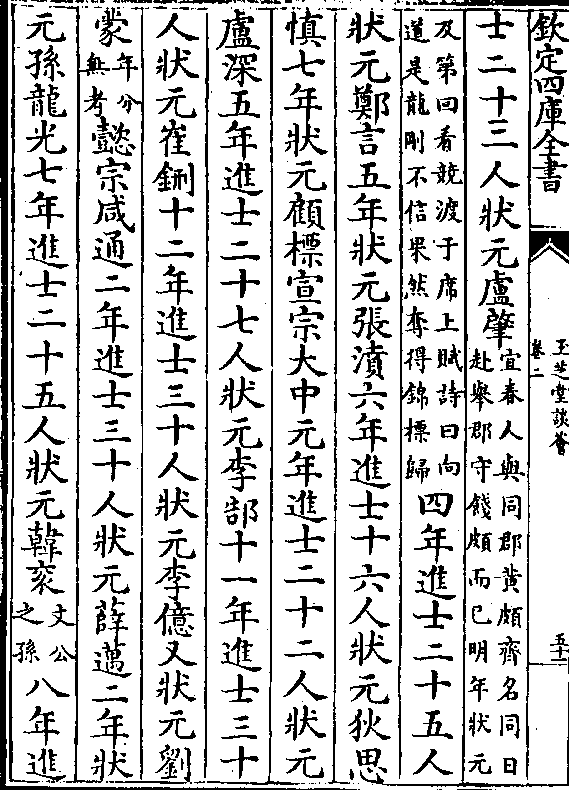 欽定四庫全書
玉芝堂談薈
卷二
五十一
士二十三人狀元盧肇宜春人與同郡黄頗齊名同日
赴舉郡守餞頗而已明年狀元
及第回看競渡于席上賦詩曰向
道是龍剛不信果然奪得錦標歸四年進士二十五人
狀元鄭言五年狀元張濆六年進士十六人狀元狄思
慎七年狀元顧標宣宗大中元年進士二十二人狀元
盧深五年進士二十七人狀元李郜十一年進士三十
人狀元崔鉶十二年進士三十人狀元李億又狀元劉
蒙年分
無考懿宗咸通二年進士三十人狀元薛邁二年狀
元孫龍光七年進士二十五人狀元韓衮文公
之孫八年進